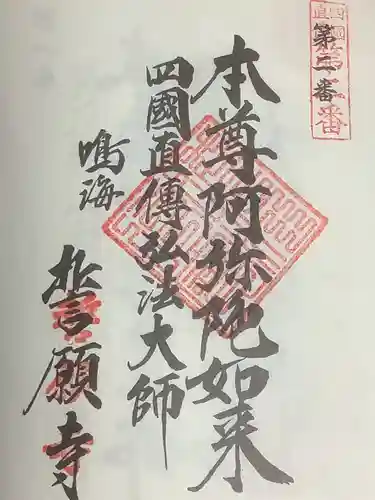 四國
直
第二番
本尊阿弥陀如来
四國直傳弘法大師
鳴海
誓願寺